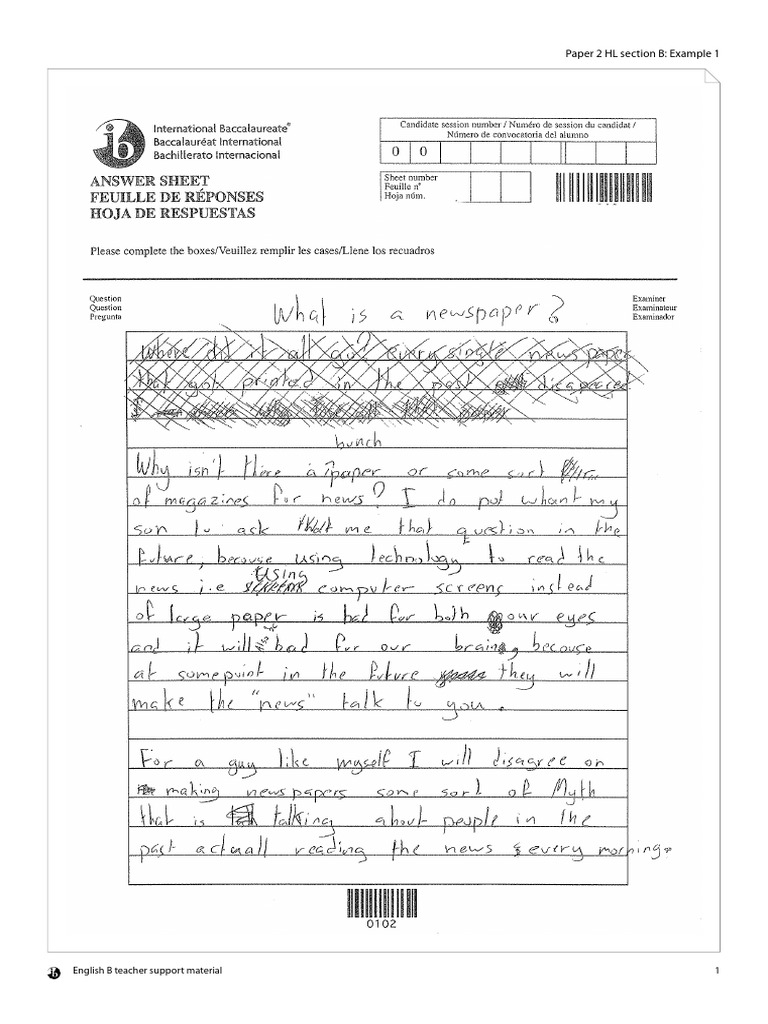 Paper 2 HL section B: Example 1
International Baccalaureate®
Baccalauréat International
Bachillerato Internacional
ANSWER SHEET
FEUILLE DE RÉPONSES
HOJA DE RESPUESTAS
Candidate session number / Numéro de session du candidat /
Número de convocatoria del alumno
0 0
Sheet number
Feuille n°
Hoja núm.
Please complete the boxes/Veuillez remplir les cases/Llene los recuadros
Question
Question
Pregunta
Examiner
Examinateur
Examinador
What is a newspaper?
Where did it all go? every single newspaper
that got printed in the past disapeared
I
bunch
Why isn't there a paper or some sort
of magazines for news? I do not whant my
son to ask me that question in the
future, because using technology to read the
news i.e using computer screens instead
of large paper is bad for both our eyes
and it will bad for our brain, because
at somepoint in the future they will
make the "news" talk to you.
For a guy like myself I will disagree on
making newspapers some sort of Myth
that is talking about people in the
past actuall reading the news every morning.
0102
ib
English B teacher support material
1